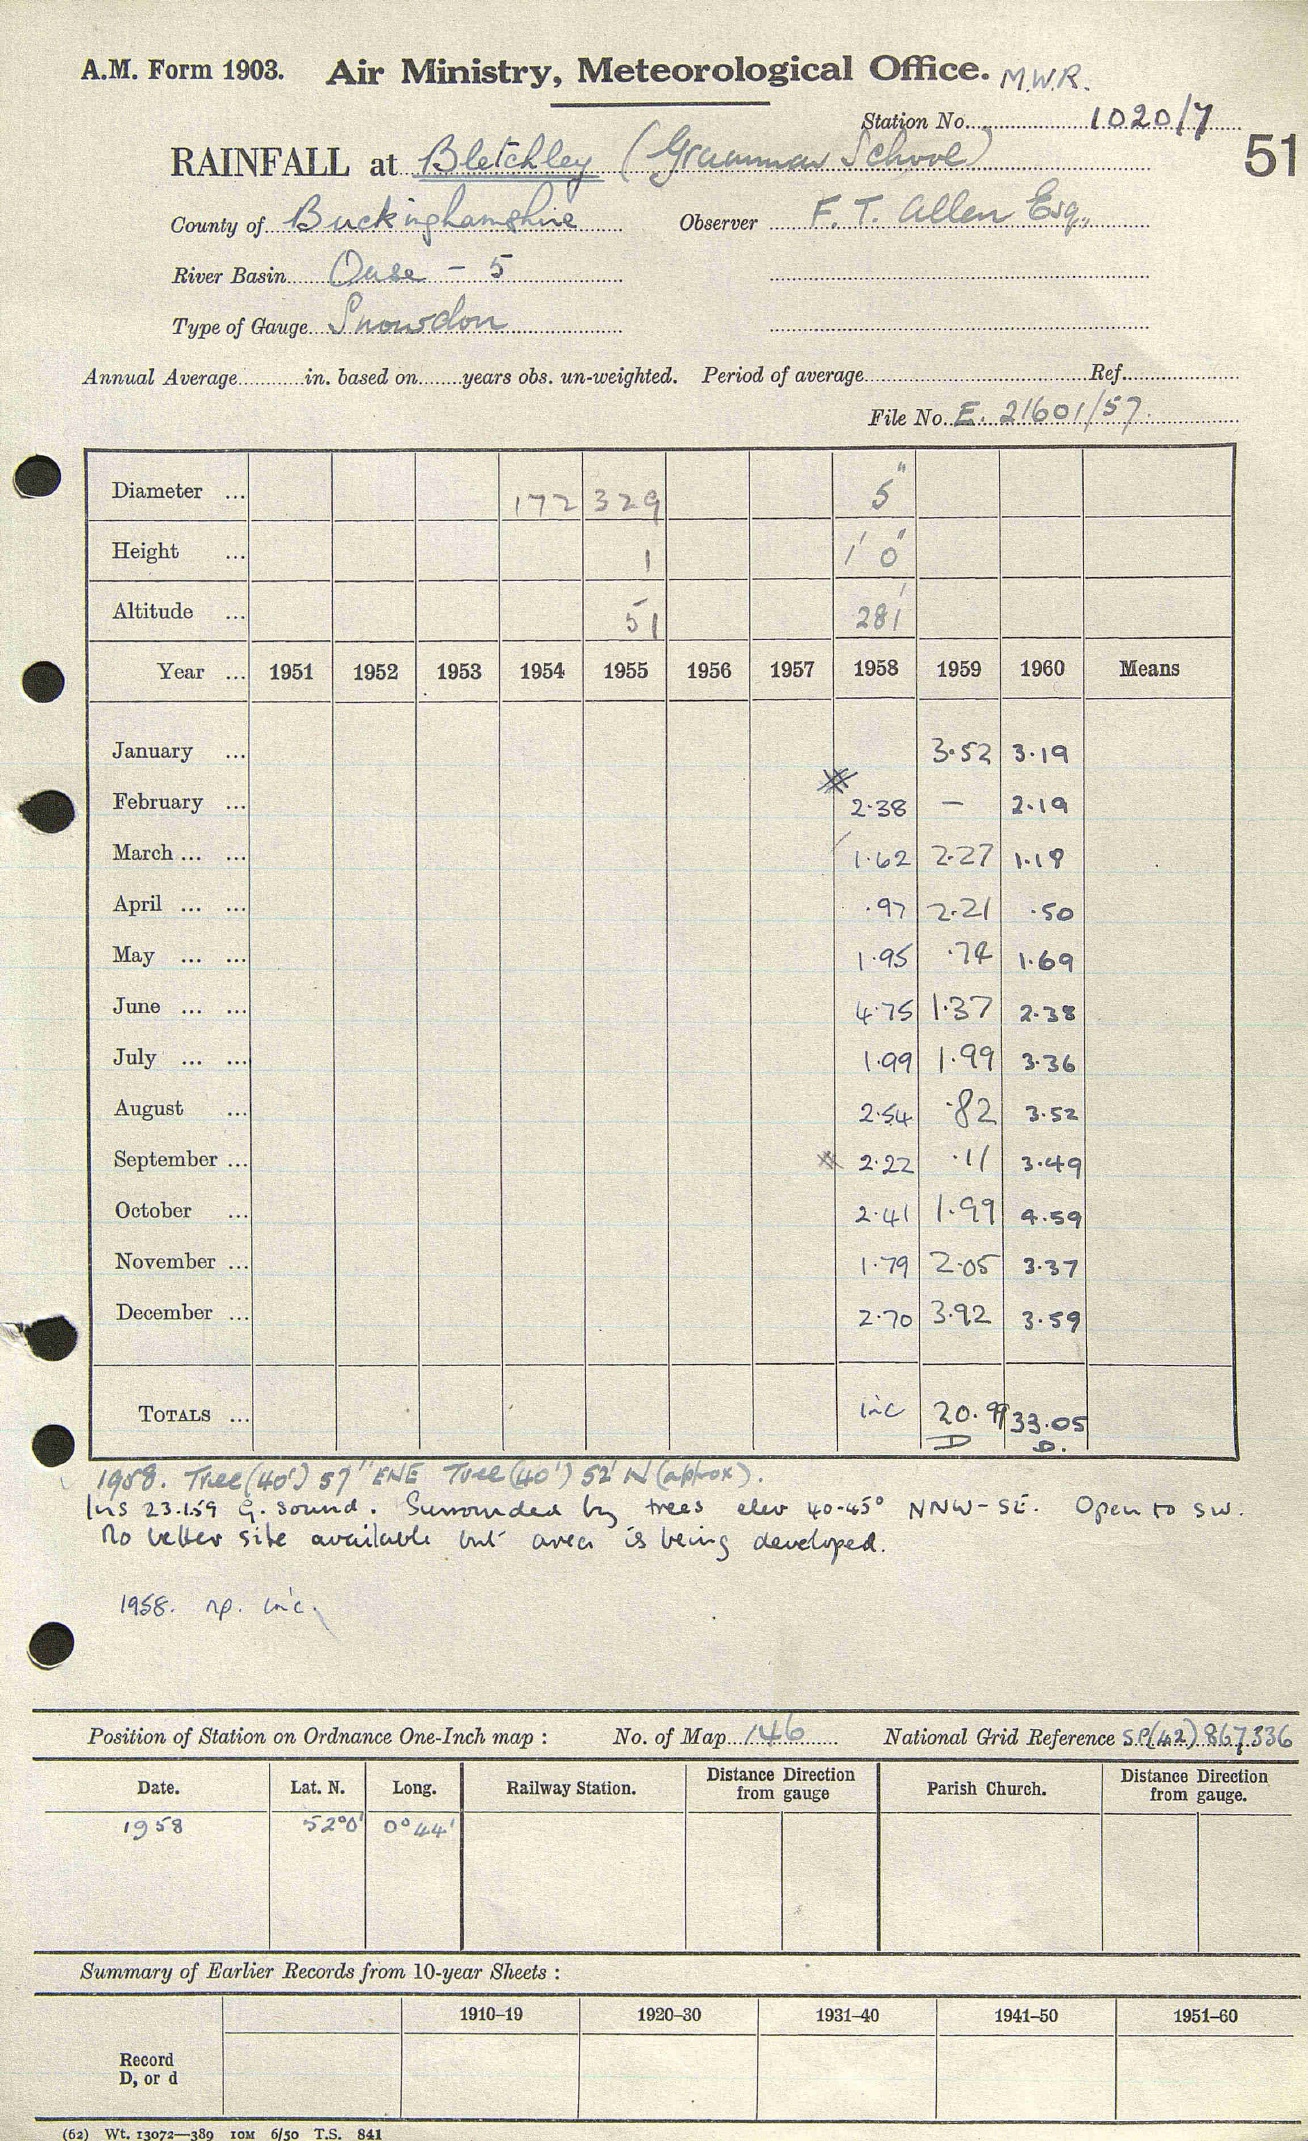 A.M. Form 1903. Air Ministry, Meteorological Office. M.W.R.
Station No. 1020/7
51
RAINFALL at Bletchley (Grammar School)
County of Buckinghamshire Observer F. T. Allen Esq.,
River Basin Ouse - 5
Type of Gauge Snowdon
Annual Average in. based on years obs. un-weighted. Period of average Ref.
File No. E. 21601/57.
Diameter ... 172 329 5"
Height ... 1 1' 0"
Altitude ... 51 281'
Year ... 1951 1952 1953 1954 1955 1956 1957 1958 1959 1960 Means
January ... 3.52 3.19
February ... 2.38 — 2.19
March ... ... 1.62 2.27 1.18
April ... ... .97 2.21 .50
May ... ... 1.95 .74 1.69
June ... ... 4.75 1.37 2.38
July ... ... 1.99 1.99 3.36
August ... 2.54 .82 3.52
September ... 2.22 .11 3.49
October ... 2.41 1.99 4.59
November ... 1.79 2.05 3.37
December ... 2.70 3.92 3.59
TOTALS ... inc 20.99 33.05
D D.
1958. Tree (40') 57' ENE Tree (40') 52' N (approx).
Ins 23.1.59 G. sound. Surrounded by trees elev 40-45° NNW-SE. Open to SW.
No better site available but area is being developed.
1958. np. inc.
Position of Station on Ordnance One-Inch map : No. of Map 146 National Grid Reference SP(42) 867,336
Date. Lat. N. Long. Railway Station. Distance from gauge Direction Parish Church. Distance from gauge. Direction
1958 52°0' 0°44'
Summary of Earlier Records from 10-year Sheets :
1910–19 1920–30 1931–40 1941–50 1951–60
Record
D, or d
(62) Wt. 13072—389 10M 6/50 T.S. 841